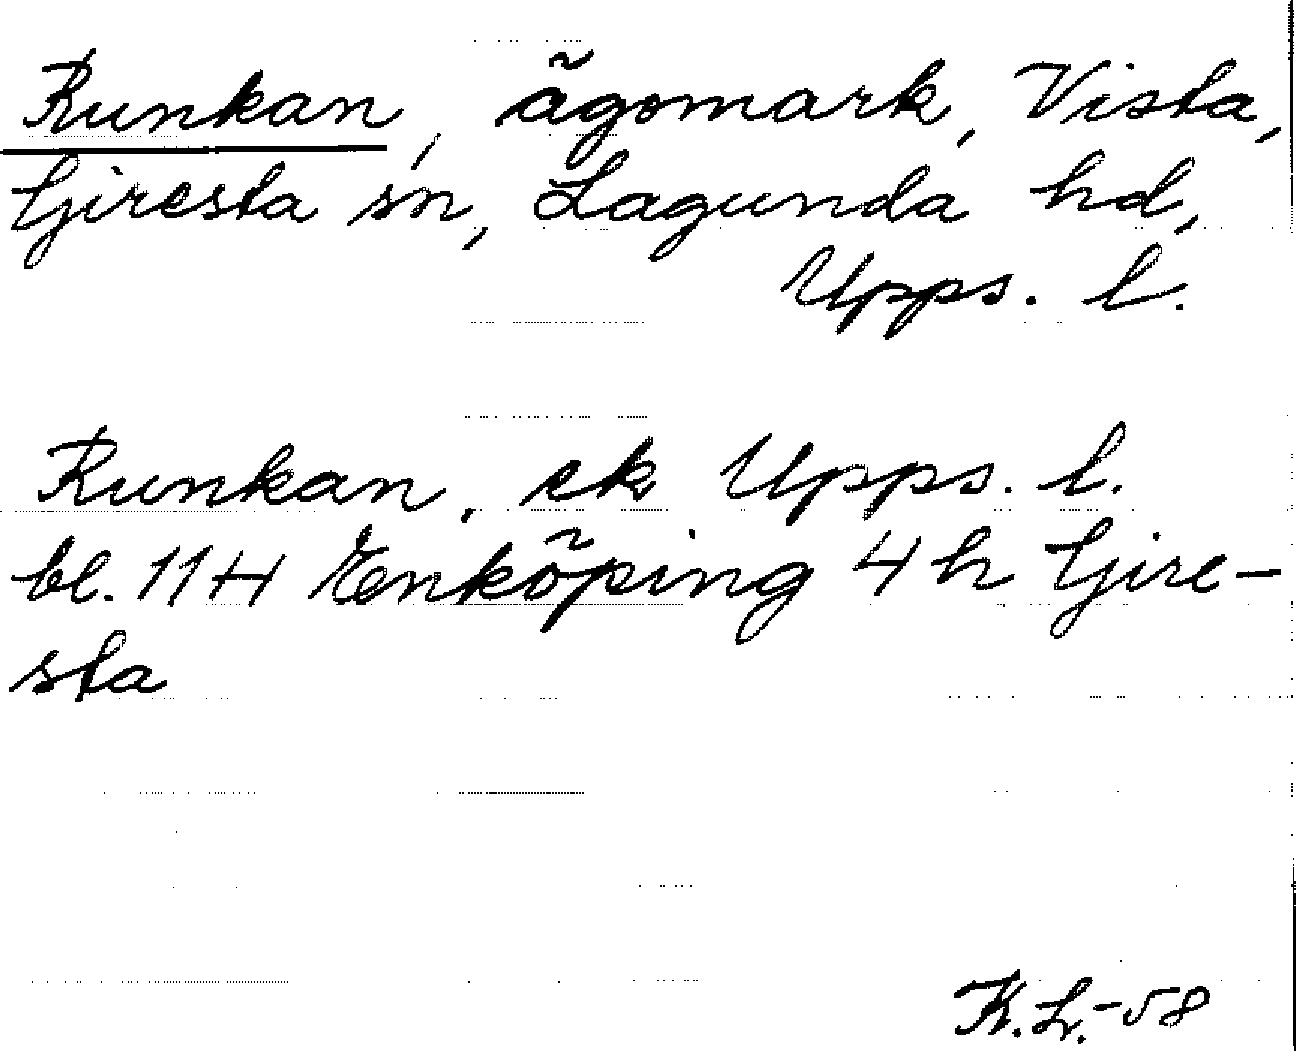 Runkan, ägomark, Vista,
Giresta sn, Lagunda hd,
Upps. l.
Runkan, ek Upps. l.
bl. 11H Enköping 4 h Gire-
sta
K.L.-58